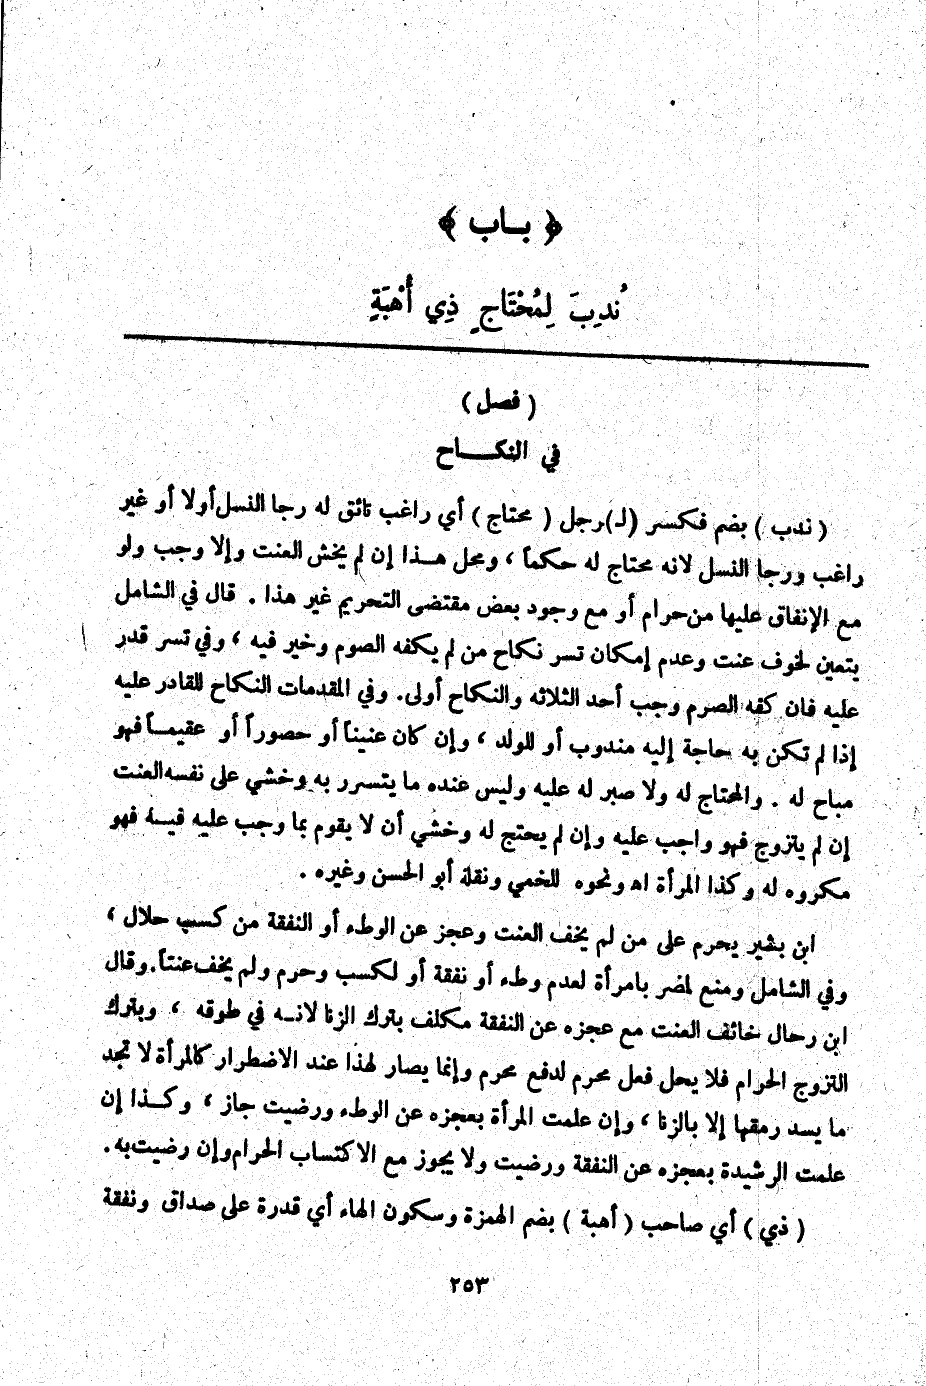 ﴿ بــاب ﴾
نُدِبَ لِمُحْتَاجٍ ذِي أُهْبَةٍ
( فصل )
في النكـــاح
( ندب ) بضم فكسر (لـ)رجل ( محتاج ) أي راغب تائق له رجا النسل أولا أو غير
راغب ورجا النسل لانه محتاج له حكماً ، ومحل هــذا إن لم يخش العنت وإلا وجب ولو
مع الإنفاق عليها من حرام أو مع وجود بعض مقتضى التحريم غير هذا . قال في الشامل
يتعين لخوف عنت وعدم إمكان تسر نكاح من لم يكفه الصوم وخير فيه ، وفي تسر قدر
عليه فان كفه الصرم وجب أحد الثلاثه والنكاح أولى. وفي المقدمات النكاح للقادر عليه
إذا لم تكن به حاجة إليه مندوب أو للولد ، وإن كان عنيناً أو حصوراً أو عقيمــاً فهو
مباح له . والمحتاج له ولا صبر له عليه وليس عنده ما يتسرر به وخشي على نفسه العنت
إن لم يتزوج فهو واجب عليه وإن لم يحتج له وخشي أن لا يقوم بما وجب عليه فيــه فهو
مكروه له وكذا المرأة اه ونحوه للخمي ونقلة أبو الحسن وغيره .
ابن بشير يحرم على من لم يخف العنت وعجز عن الوطء أو النفقة من كسب حلال ،
وفي الشامل ومنع لمضر بامرأة لعدم وطء أو نفقة أو لكسب وحرم ولم يخف عنتاً. وقال
ابن رحال خائف العنت مع عجزه عن النفقة مكلف بترك الزنا لانــه في طوقه ، وبترك
التزوج الحرام فلا يحل فعل محرم لدفع محرم وإنما يصار لهذا عند الاضطرار كالمرأة لا تجد
ما يسد رمقها إلا بالزنا ، وإن علمت المرأة بعجزه عن الوطء ورضيت جاز ، وكــذا إن
علمت الرشيدة بعجزه عن النفقة ورضيت ولا يجوز مع الاكتساب الحرام وإن رضيت به.
( ذي ) أي صاحب ( أهبة ) بضم الهمزة وسكون الهاء أي قدرة على صداق ونفقة
٢٥٣